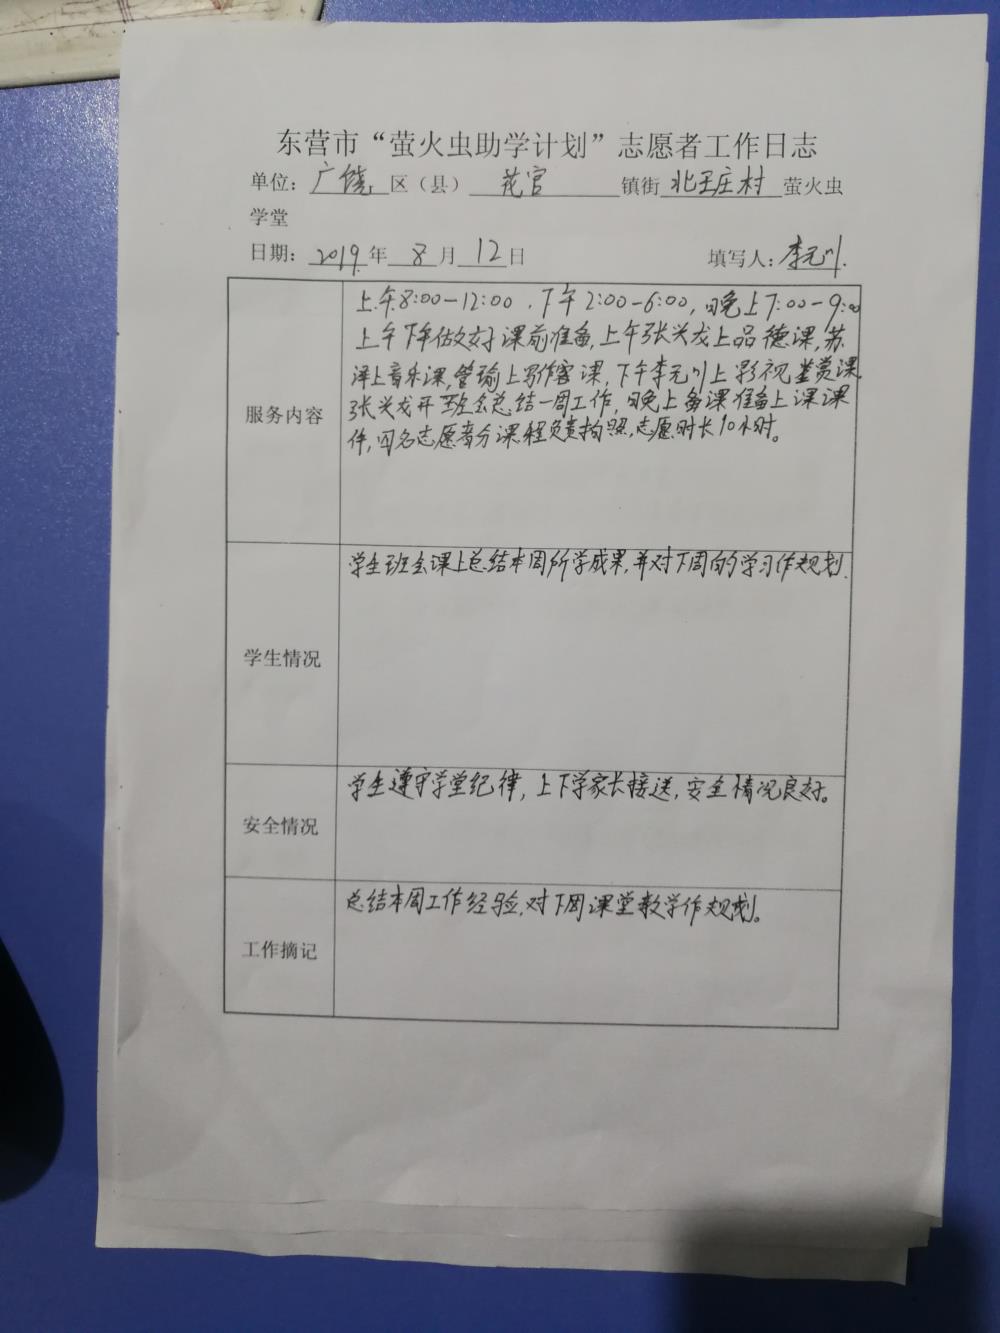 东营市“萤火虫助学计划”志愿者工作日志
单位：广饶区（县）花官镇街北王庄村萤火虫
学堂
日期：2019年8月12日 填写人：李元川.
服务内容
上午8:00-12:00，下午2:00-6:00，晚上7:00-9:00
上午下午做好课前准备，上午张兴龙上品德课，苏
泽上音乐课，管瑜上写作课，下午李元川上影视鉴赏课
张兴龙开班会总结一周工作，晚上备课准备上课课
件，四名志愿者分课程负责拍照，志愿时长10小时。
学生情况
学生班会课上总结本周所学成果，并对下周的学习作规划.
安全情况
学生遵守学堂纪律，上下学家长接送，安全情况良好。
工作摘记
总结本周工作经验，对下周课堂教学作规划。